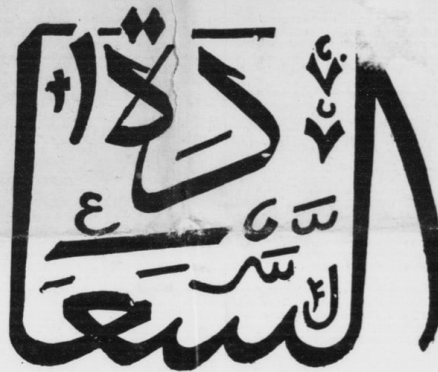 السَّعَادَة